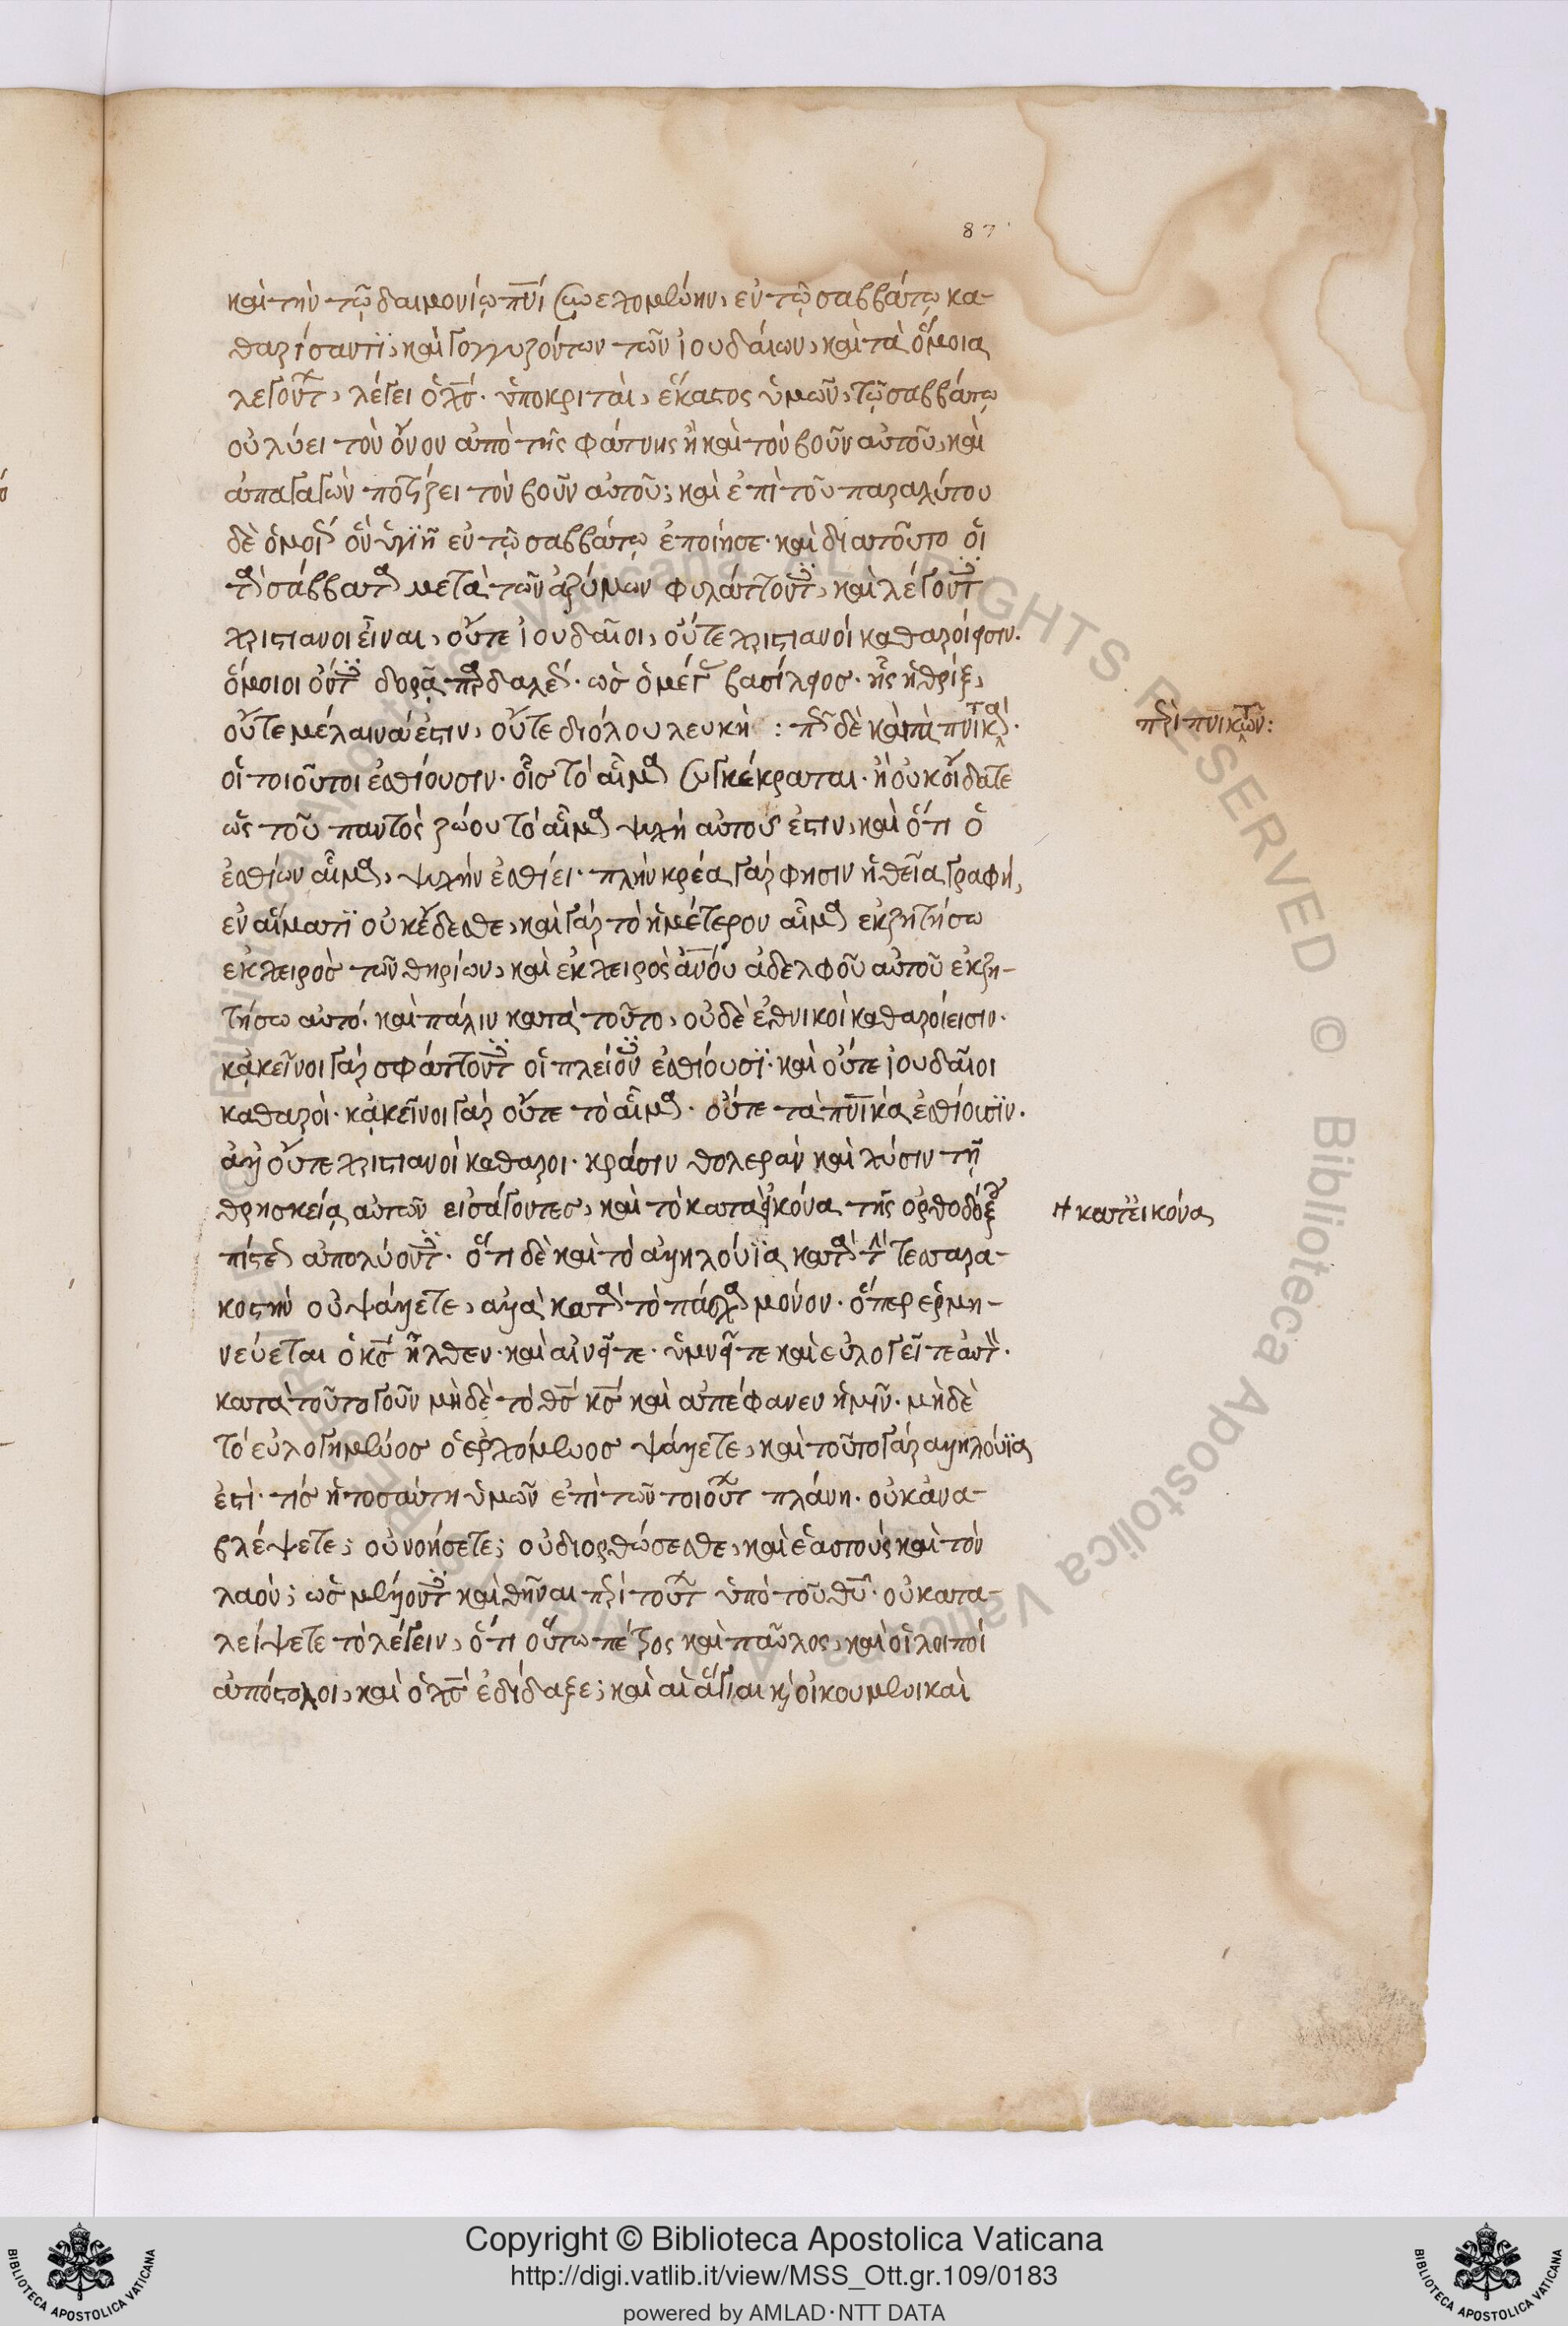 87
καὶ τὴν τῷ δαιμονίῳ πνί συνεχομένην, ἐν τῷ σαββάτῳ κα-
θαρίσαντι, καὶ γογγυζόντων τῶν ἰουδαίων, καὶ τὰ ὅμοια
λεγόντ, λέγει ὁ χς. ὑποκριταὶ, ἕκαστος ὑμῶν, τῷ σαββάτῳ
οὐ λύει τὸν ὄνον ἀπὸ τῆς φάτνης ἢ καὶ τὸν βοῦν αὐτοῦ, καὶ
ἀπαγαγὼν ποτίζει τὸν βοῦν αὐτοῦ; καὶ ἐπὶ τοῦ παραλύτου
δὲ ὁμοί ὃν ὑγιῆ ἐν τῷ σαββάτῳ ἐποίησε. καὶ διατοῦτο οἱ
τὰ σάββατα μετὰ τῶν ἀζύμων φυλάττοντ, καὶ λέγοντ
χριστιανοι εἶναι, οὔτε ἰουδαῖοι, οὔτε χριστιανοί καθαροί εἰσιν.
ὅμοιοι ὄντ δορᾷ παρδαλέ. ὡς ὁ μέγ βασίλειος. ἧς ἡ θρίξ,
οὔτε μέλαινά ἐστιν, οὔτε διόλου λευκή : πῶς δὲ καὶ τὰ πνικτὰ.
περὶ πνικτῶν:
οἱ τοιοῦτοι ἐσθίουσιν. οἷς τὸ αἷμα συγκέκραται. ἢ οὐκ οἴδατε
ὡς τοῦ παντὸς ζώου τὸ αἷμα ψυχὴ αὐτοῦ ἐστιν, καὶ ὅτι ὁ
ἐσθίων αἷμα, ψυχὴν ἐσθίει. πλὴν κρέα γὰρ φησιν ἡ θεῖα γραφή,
ἐν αἵματι οὐκ ἔδεσθε, καὶ γὰρ τὸ ἡμέτερον αἷμα ἐκζητήσω
ἐκ χειρὸς τῶν θηρίων, καὶ ἐκ χειρὸς ἀνου ἀδελφοῦ αὐτοῦ ἐκζη-
τήσω αὐτό. καὶ πάλιν κατὰ τοῦτο, οὐδὲ ἐθνικοὶ καθαροί εἰσιν.
κἀκεῖνοι γὰρ σφάττοντ οἱ πλείον ἐσθίουσι. καὶ οὔτε ἰουδαῖοι
καθαροὶ. κἀκεῖνοι γὰρ οὔτε τὸ αἷμα. οὔτε τὰ πνικά ἐσθίουσιν.
ἀλλ οὔτε χριστιανοί καθαροι. κράσιν θολερὰν καὶ χύσιν τῇ
θρησκείᾳ αὐτῶν εἰσάγοντες, καὶ τὸ κατεικόνα τῆς ὀρθοδόξ
κατ εἰκόνα
πίστε ἀπολύοντ. ὅτι δὲ καὶ τὸ ἀλληλούϊα κατὰ τὴν τεσσαρα-
κοστὴν οὐ ψάλλετε, ἀλλὰ κατὰ τὸ πάσχα μόνον. ὅπερ ἑρμη-
νεύεται ὁ κς ἦλθεν. καὶ αἰνεῖτε. ὑμνεῖτε καὶ εὐλογεῖτε αὐτὸν.
κατὰ τοῦτο γοῦν μηδὲ τὸ θς κς καὶ ἐπέφανεν ἡμῖν. μηδὲ
τὸ εὐλογημένος ὁ ἐρχόμενος ψάλλετε, καὶ τοῦτο γὰρ ἀλληλούϊα
ἐστὶ. τίς ἡ τοσαύτη ὑμῶν ἐπὶ τῶν τοιούτ πλάνη. οὐκ ἀνα-
βλέψετε; οὐ νοήσετε; οὐ διορθώσεσθε, καὶ ἑαυτοὺς καὶ τὸν
λαόν; ὡς μέλλοντ κριθῆναι περὶ τούτ ὑπὸ τοῦ θυ. οὐ κατα-
λείψετε τὸ λέγειν, ὅτι οὕτω πέτρος καὶ παῦλος, καὶ οἱ λοιποί
ἀπόστολοι, καὶ ὁ χς ἐδίδαξε; καὶ αἱ ἅγιαι καὶ οἰκουμενικαὶ
Copyright © Biblioteca Apostolica Vaticana
http://digi.vatlib.it/view/MSS_Ott.gr.109/0183
powered by AMLAD·NTT DATA